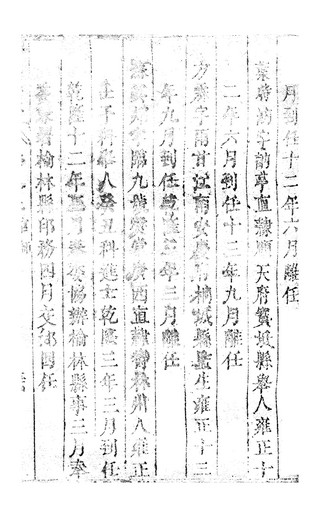 月到任十二年六月離任
字訥亭直隸順天府寶坻縣舉人雍正十
二年六月到任十三年九月離任
方 字雨甘江南安慶府桐城縣監生雍正十三
年九月到任乾隆三年三月離任
九號 堂廣西直隸鬱林州人雍正
壬子科舉人癸丑科進士乾隆三年三月到任
乾隆十二年 月 委協辦榆林縣事三月奉
委署 榆林縣印務四月交卸回任